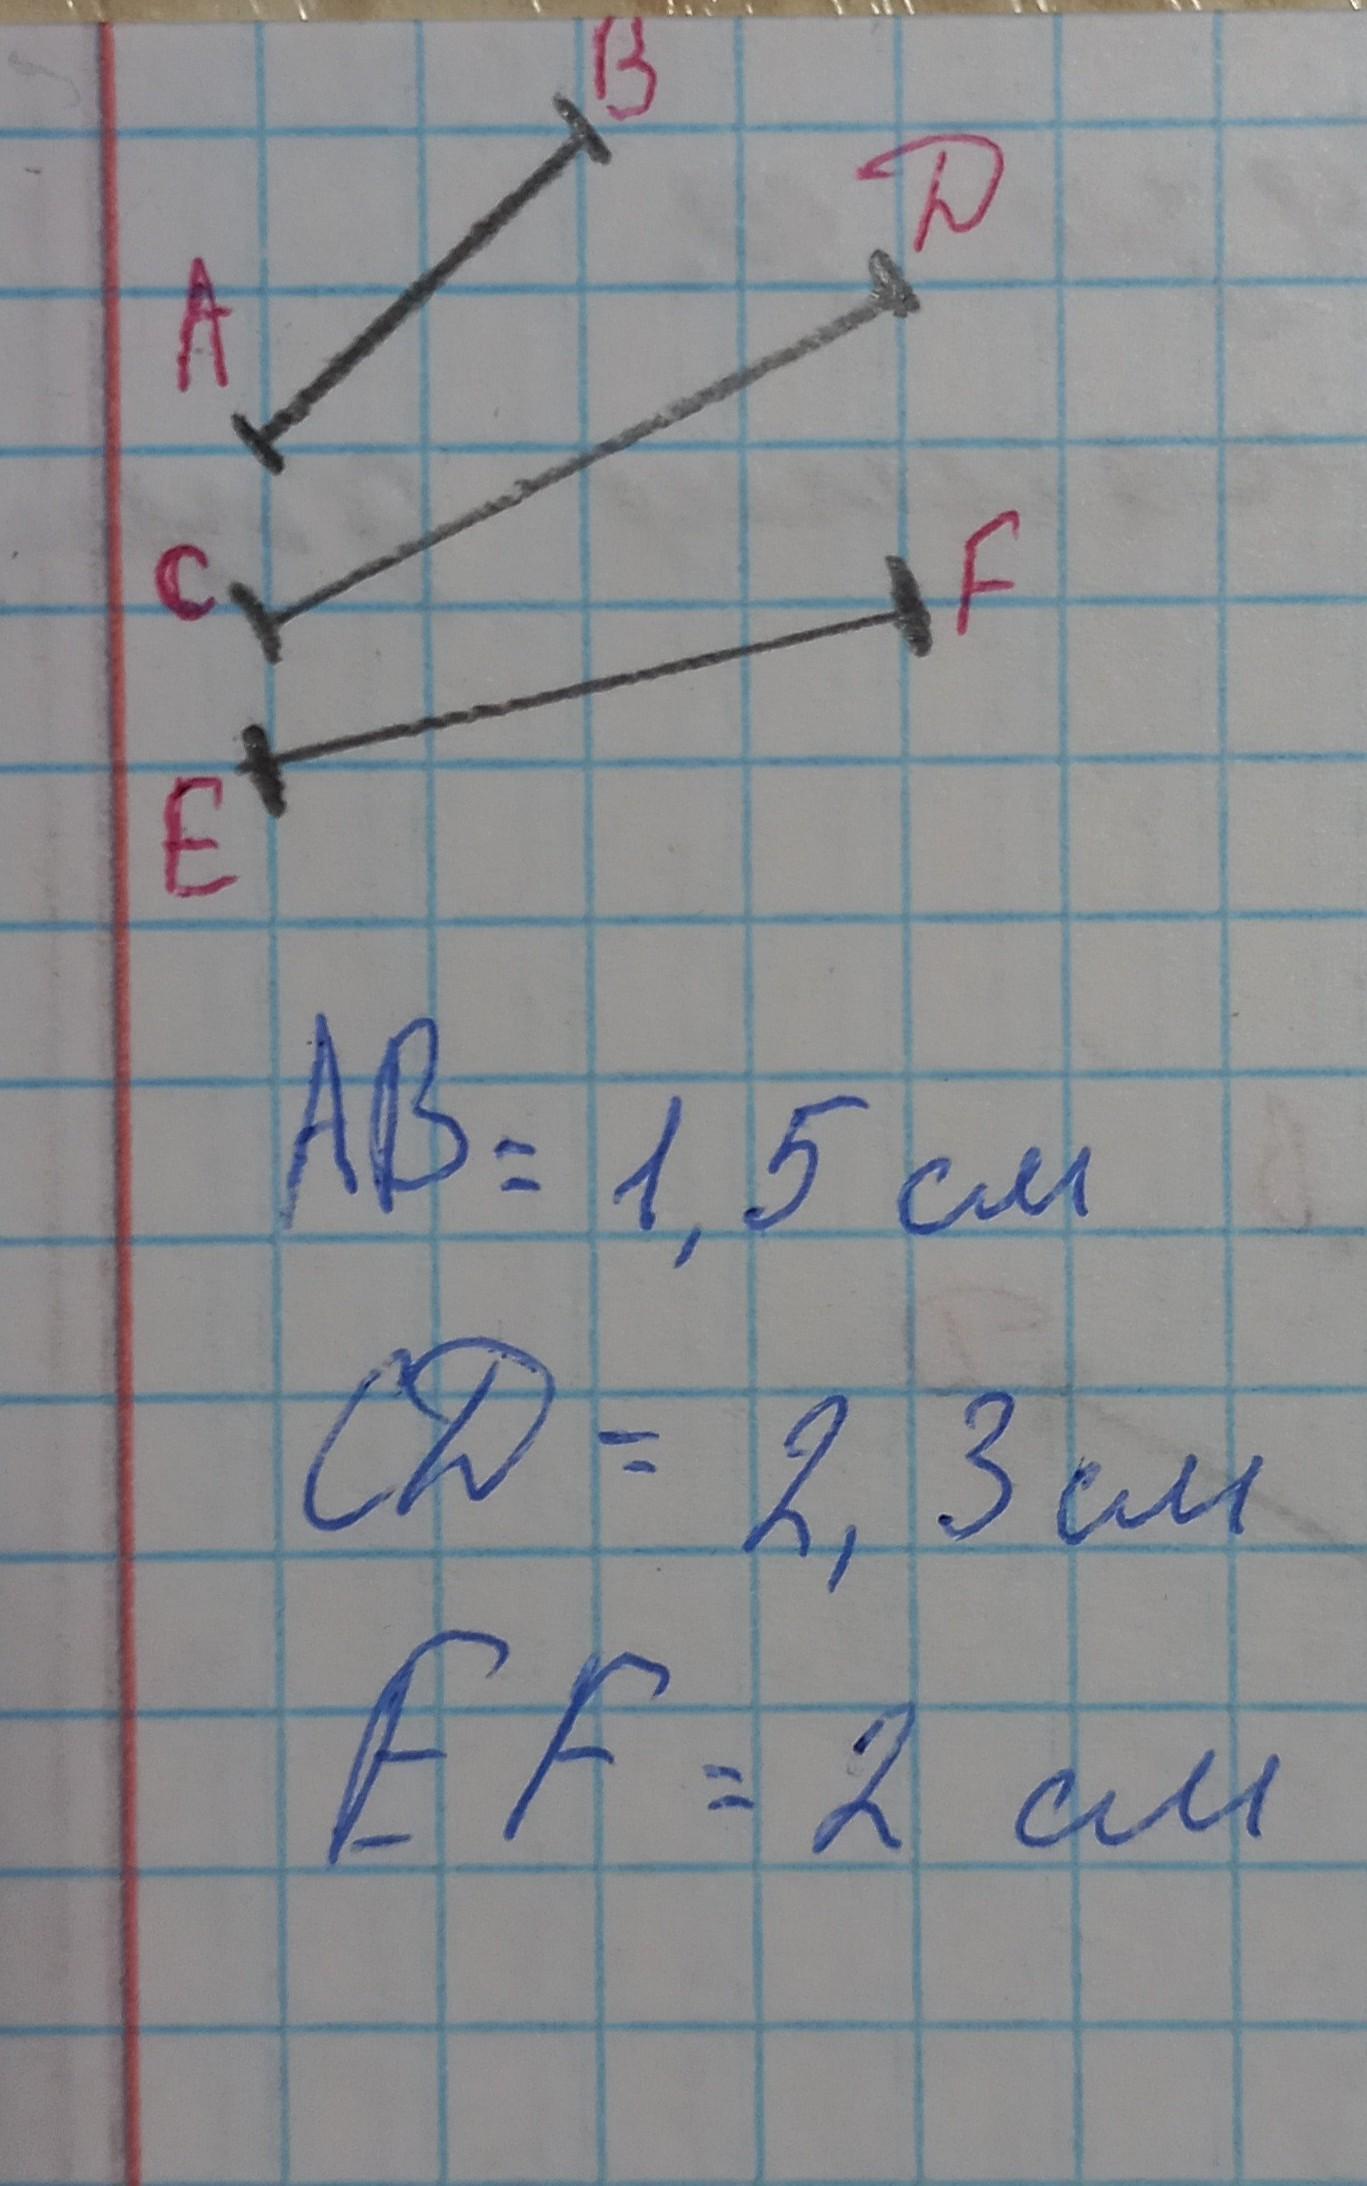 B
D
A
C
F
E
AB = 1,5 см
CD = 2,3 см
EF = 2 см